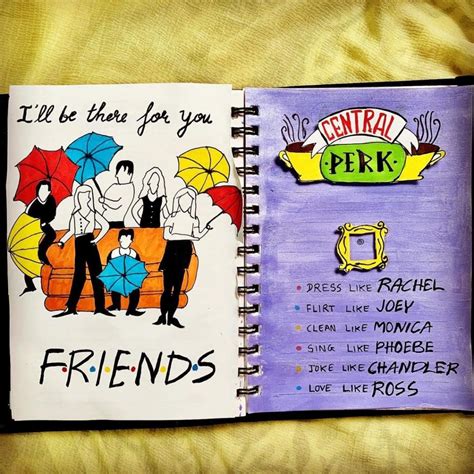 I'll be there for you
F·R·I·E·N·D·S
CENTRAL
PERK
• DRESS LIKE RACHEL
• FLIRT LIKE JOEY
• CLEAN LIKE MONICA
• SING LIKE PHOEBE
• JOKE LIKE CHANDLER
• LOVE LIKE ROSS